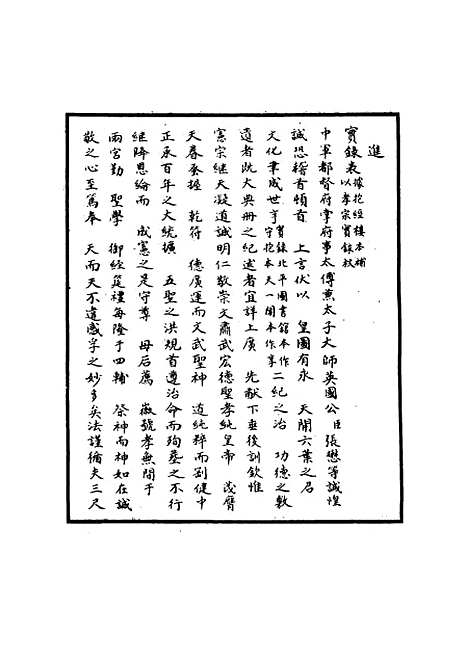 進
實錄表 據抱經樓本補以孝宗實錄校
中軍都督府掌府事太傅兼太子太師英國公臣張懋等誠惶
誠恐稽首頓首 上言伏以 皇圖有永 天開六葉之名
文化聿成世享 實錄北平圖書館本作守抱本天一閣本作享 二紀之治 功德之敷
遺者既大典冊之紀述者宜詳上廣 先猷下垂後訓欽惟
憲宗繼天凝道誠明仁敬崇文肅武宏德聖孝純皇帝 茂膺
天眷奏握 乾符 德廣運而文武聖神 道純粹而剛健中
正承百年之大統擴 五聖之洪規首遵治命而殉葬之不行
繼降恩綸而 成憲之是守尊 母后薦 徽號孝無間于
兩宮勤 聖學 御經筵禮每隆于四輔 祭神而神如在誠
敬之心至篤奉 天而天不違感孚之妙多矣法謹循夫三尺